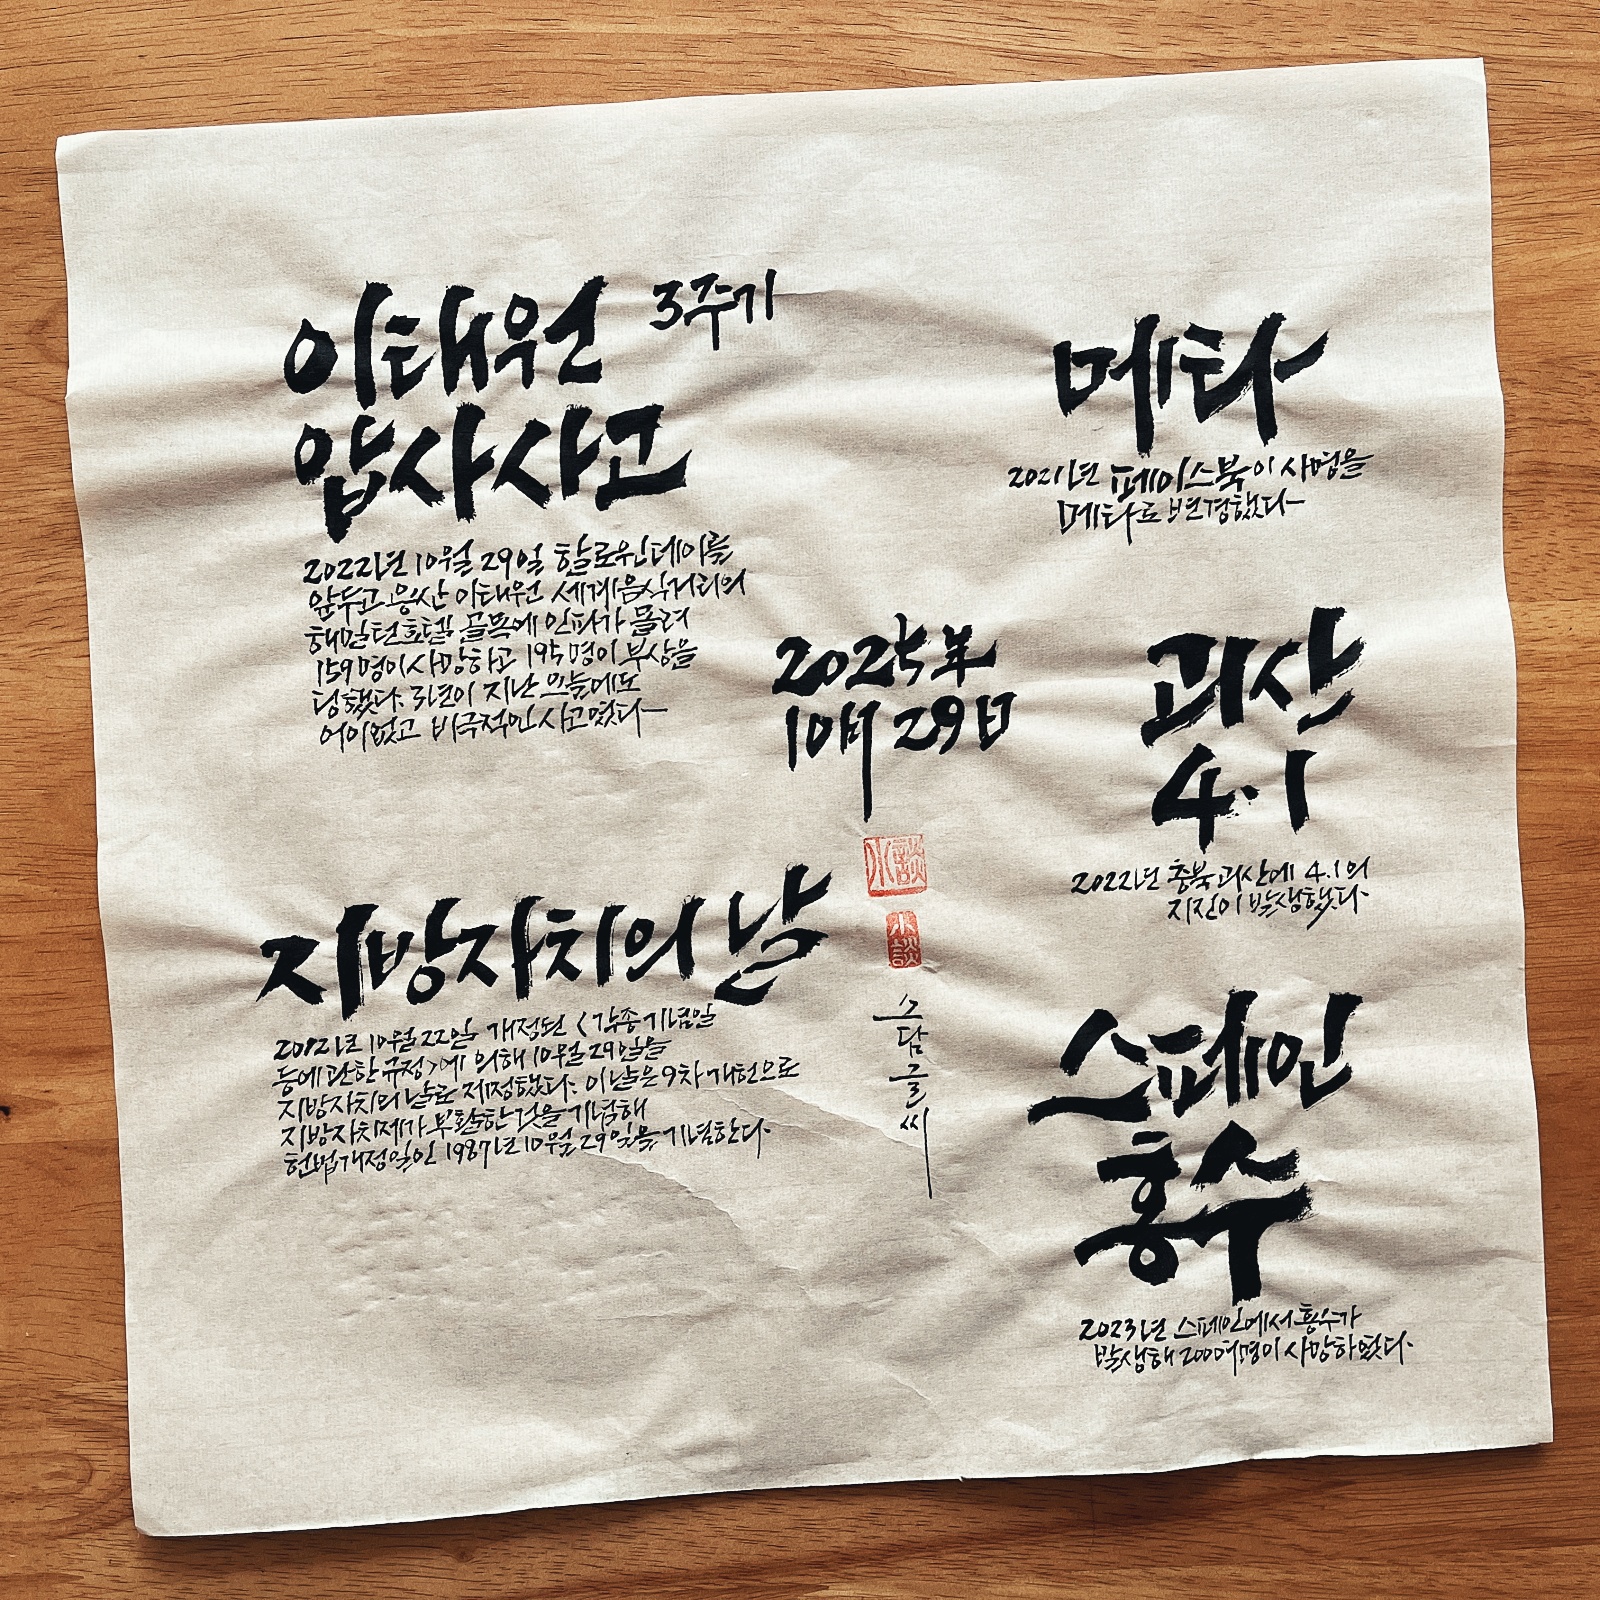 이태원 3주기
압사사고
2022년 10월 29일 할로윈데이를
앞두고 용산 이태원 세계음식거리의
해밀턴호텔 골목에 인파가 몰려
159명이 사망하고 195명이 부상을
당했다. 3년이 지난 오늘에도
어이없고 비극적인 사고였다
지방자치의 날
2012년 10월 22일 개정된 <각종 기념일
등에 관한 규정>에 의해 10월 29일을
지방자치의 날로 제정했다. 이날은 9차 개헌으로
지방자치제가 부활한 것을 기념해
헌법개정일인 1987년 10월 29일을 기념한다.
2025年
10月 29日
小談
小談
소담글씨
메타
2021년 페이스북이 사명을
메타로 변경했다
괴산
4.1
2022년 충북 괴산에 4.1의
지진이 발생했다.
스페인
홍수
2023년 스페인에서 홍수가
발생해 200여명이 사망하였다.